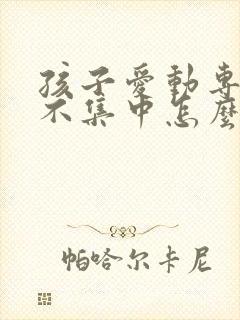 孩子愛動專
不集中怎麼
帕哈尔卡尼